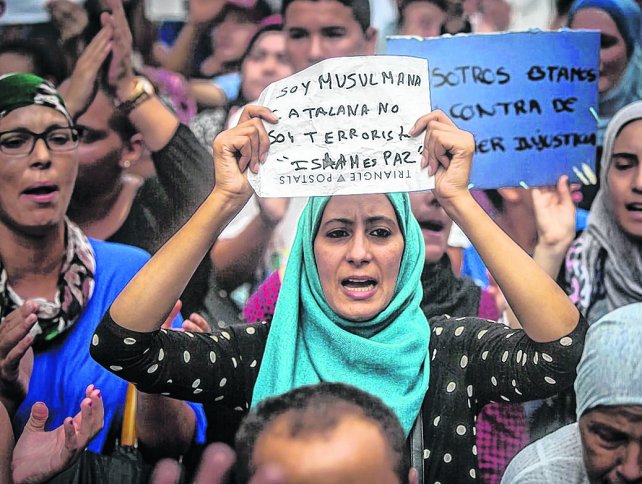 SOY MUSULMANA
CATALANA NO
SOY TERRORISTA
"ISLAM ES PAZ"
TRIANGLE ▽ POSTALS
SOTROS ESTAMOS
CONTRA DE
INJUSTICI